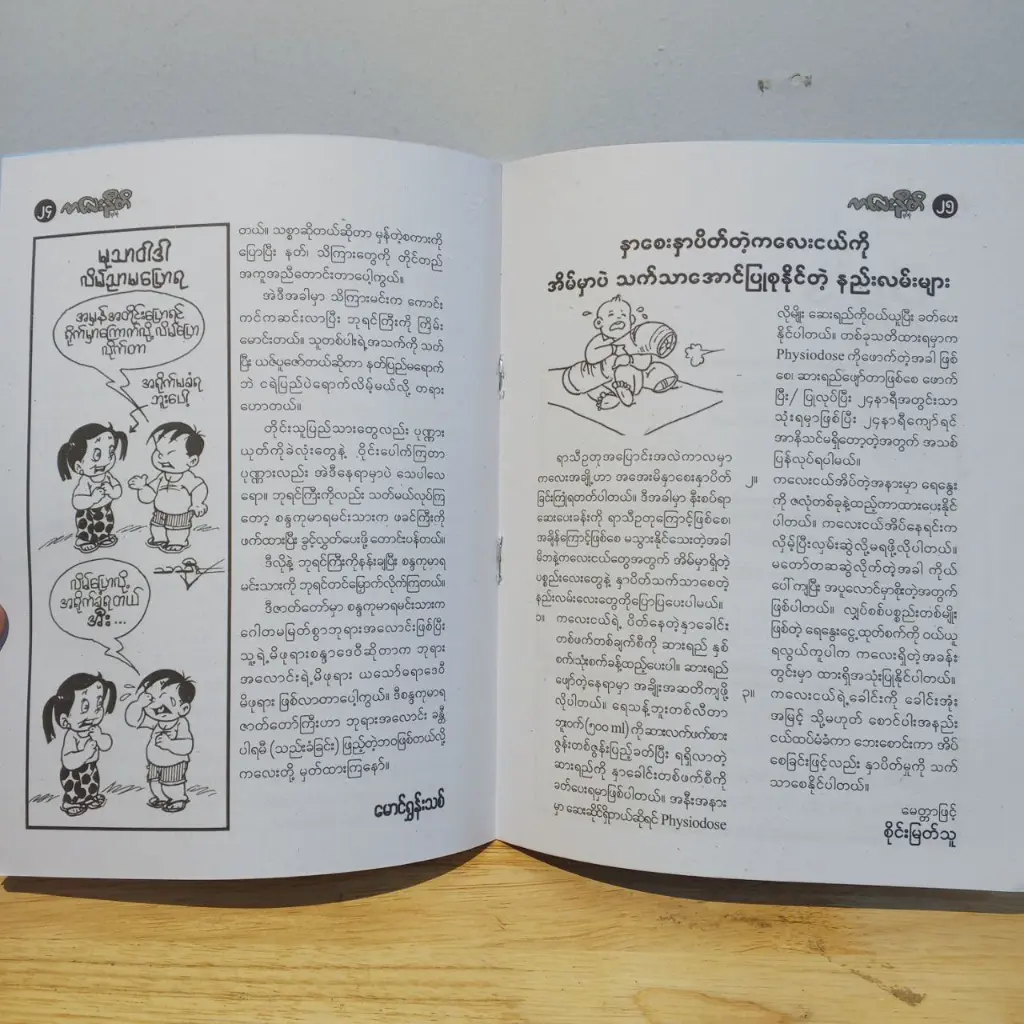 ၂၄ ကလေးနှိတ်
မုသာဝါဒါ
လိမ်ညာမပြောရ
အမှန်အတိုင်းပြောရင်
ရိုက်မှာကြောက်လို့ လိမ်ပြော
လိုက်တာ
အရိုက်မခံရ
ဘူးပေါ့
လိမ်ပြောလို့
အရိုက်ခံရတယ်
အီး...
တယ်။ သစ္စာဆိုတယ်ဆိုတာ မှန်တဲ့စကားကို
ပြောပြီး နတ်၊ သိကြားတွေကို တိုင်တည်
အကူအညီတောင်းတာပေါ့ကွယ်။
အဲဒီအခါမှာ သိကြားမင်းက ကောင်း
ကင်ကဆင်းလာပြီး ဘုရင်ကြီးကို ကြိမ်း
မောင်းတယ်။ သူတစ်ပါးရဲ့အသက်ကို သတ်
ပြီး ယဇ်ပူဇော်တယ်ဆိုတာ နတ်ပြည်မရောက်
ဘဲ ငရဲပြည်ပဲရောက်လိမ့်မယ်လို့ တရား
ဟောတယ်။
တိုင်းသူပြည်သားတွေလည်း ပုဏ္ဏား
ယုတ်ကိုခဲလုံးတွေနဲ့ ဝိုင်းပေါက်ကြတာ
ပုဏ္ဏားလည်း အဲဒီနေရာမှာပဲ သေပါလေ
ရော။ ဘုရင်ကြီးကိုလည်း သတ်မယ်လုပ်ကြ
တော့ စန္ဒကုမာရမင်းသားက ဖခင်ကြီးကို
ဖက်ထားပြီး ခွင့်လွှတ်ပေးဖို့ တောင်းပန်တယ်။
ဒီလိုနဲ့ ဘုရင်ကြီးကိုနန်းချပြီး စန္ဒကုမာရ
မင်းသားကို ဘုရင်တင်မြှောက်လိုက်ကြတယ်။
ဒီဇာတ်တော်မှာ စန္ဒကုမာရမင်းသားက
ဂေါတမမြတ်စွာဘုရားအလောင်းဖြစ်ပြီး
သူ့ရဲ့မိဖုရား စန္ဒာဒေဝီဆိုတာက ဘုရား
အလောင်းရဲ့မိဖုရား ယသော်ဓရာဒေဝီ
မိဖုရား ဖြစ်လာတာပေါ့ကွယ်။ ဒီစန္ဒကုမာရ
ဇာတ်တော်ကြီးဟာ ဘုရားအလောင်း ခန္တီ
ပါရမီ (သည်းခံခြင်း) ဖြည့်တဲ့ဘဝဖြစ်တယ်လို့
ကလေးတို့ မှတ်ထားကြနော်။
မောင်ရွှန်းသစ်
ကလေးနှိတ် ၂၅
နှာစေးနှာပိတ်တဲ့ကလေးငယ်ကို
အိမ်မှာပဲ သက်သာအောင်ပြုစုနိုင်တဲ့ နည်းလမ်းများ
ရာသီဥတုအပြောင်းအလဲကာလမှာ
ကလေးအချို့ဟာ အအေးမိနှာစေးနှာပိတ်
ခြင်းကြုံရတတ်ပါတယ်။ ဒီအခါမှာ နီးစပ်ရာ
ဆေးပေးခန်းကို ရာသီဥတုကြောင့်ဖြစ်စေ၊
အချိန်ကြောင့်ဖြစ်စေ မသွားနိုင်သေးတဲ့အခါ
မိဘနဲ့ကလေးငယ်တွေအတွက် အိမ်မှာရှိတဲ့
ပစ္စည်းလေးတွေနဲ့ နှာပိတ်သက်သာစေတဲ့
နည်းလမ်းလေးတွေကိုပြောပြပေးပါမယ်။
၁။ ကလေးငယ်ရဲ့ ပိတ်နေတဲ့နှာခေါင်း
တစ်ဖက်တစ်ချက်စီကို ဆားရည် နှစ်
စက်သုံးစက်ခန့်ထည့်ပေးပါ။ ဆားရည်
ဖျော်တဲ့နေရာမှာ အချိုးအဆတိကျဖို့
လိုပါတယ်။ ရေသန့်ဘူးတစ်လီတာ
ဘူးဝက်(၅၀၀ ml) ကို ဆားလက်ဖက်စား
ဇွန်းတစ်ဇွန်းပြည့်ခတ်ပြီး ရရှိလာတဲ့
ဆားရည်ကို နှာခေါင်းတစ်ဖက်စီကို
ခတ်ပေးရမှာဖြစ်ပါတယ်။ အနီးအနား
မှာ ဆေးဆိုင်ရှိတယ်ဆိုရင် Physiodose
လိုမျိုး ဆေးရည်ကိုဝယ်ယူပြီး ခတ်ပေး
နိုင်ပါတယ်။ တစ်ခုသတိထားရမှာက
Physiodose ကိုဖောက်တဲ့အခါ ဖြစ်
စေ၊ ဆားရည်ဖျော်တာဖြစ်စေ ဖောက်
ပြီး/ ပြုလုပ်ပြီး ၂၄နာရီအတွင်းသာ
သုံးရမှာဖြစ်ပြီး ၂၄နာရီကျော်ရင်
အာနိသင်မရှိတော့တဲ့အတွက် အသစ်
ပြန်လုပ်ရပါမယ်။
၂။ ကလေးငယ်အိပ်တဲ့အနားမှာ ရေနွေး
ကို ဇလုံတစ်ခုနဲ့ထည့်ကာထားပေးနိုင်
ပါတယ်။ ကလေးငယ်အိပ်နေရင်းက
လှိမ့်ပြီးလှမ်းဆွဲလို့မရဖို့လိုပါတယ်။
မတော်တဆဆွဲလိုက်တဲ့အခါ ကိုယ်
ပေါ်ကျပြီး အပူလောင်မှာစိုးတဲ့အတွက်
ဖြစ်ပါတယ်။ လျှပ်စစ်ပစ္စည်းတစ်မျိုး
ဖြစ်တဲ့ ရေနွေးငွေ့ထုတ်စက်ကို ဝယ်ယူ
ရလွယ်ကူပါက ကလေးရှိတဲ့အခန်း
တွင်းမှာ ထားရှိအသုံးပြုနိုင်ပါတယ်။
၃။ ကလေးငယ်ရဲ့ခေါင်းကို ခေါင်းအုံး
အမြင့် သို့မဟုတ် စောင်ပါးအနည်း
ငယ်ထပ်မံခံကာ ဘေးစောင်းကာ အိပ်
စေခြင်းဖြင့်လည်း နှာပိတ်မှုကို သက်
သာစေနိုင်ပါတယ်။
မေတ္တာဖြင့်
စိုင်းမြတ်သူ